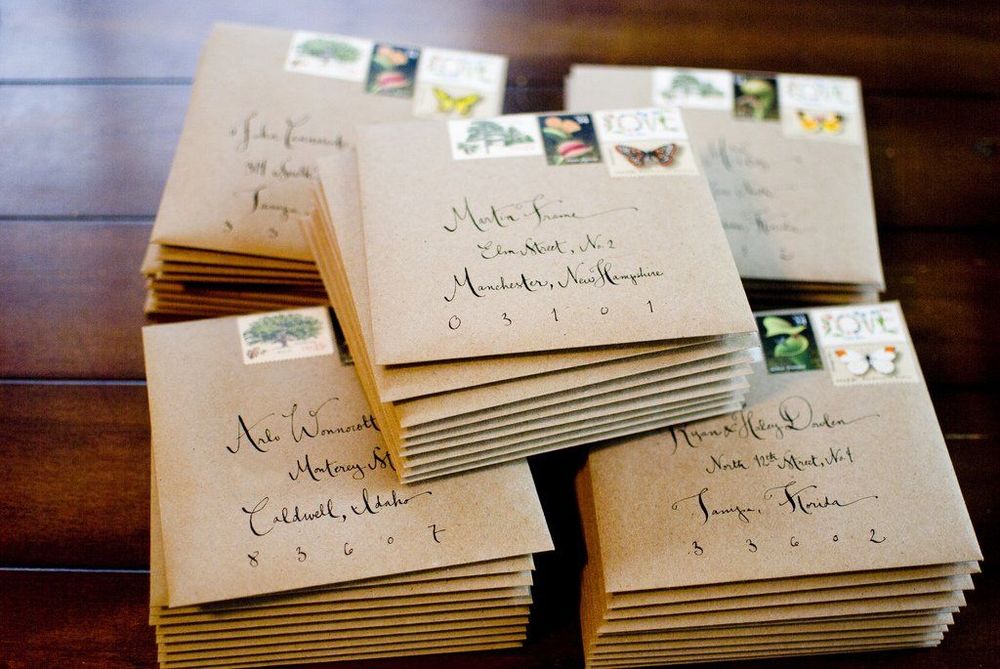 LOVE
John
311 North
Tampa
3 3
LOVE
LOVE
Martin Frame
Elm Street, No. 2
Manchester, New Hampshire
0 3 1 0 1
Arlo Wonnocott
Monterey St
Caldwell, Idaho
8 3 6 0 7
LOVE
Ryan & Haley Darden
North 12th Street, No. 4
Tampa, Florida
3 3 6 0 2